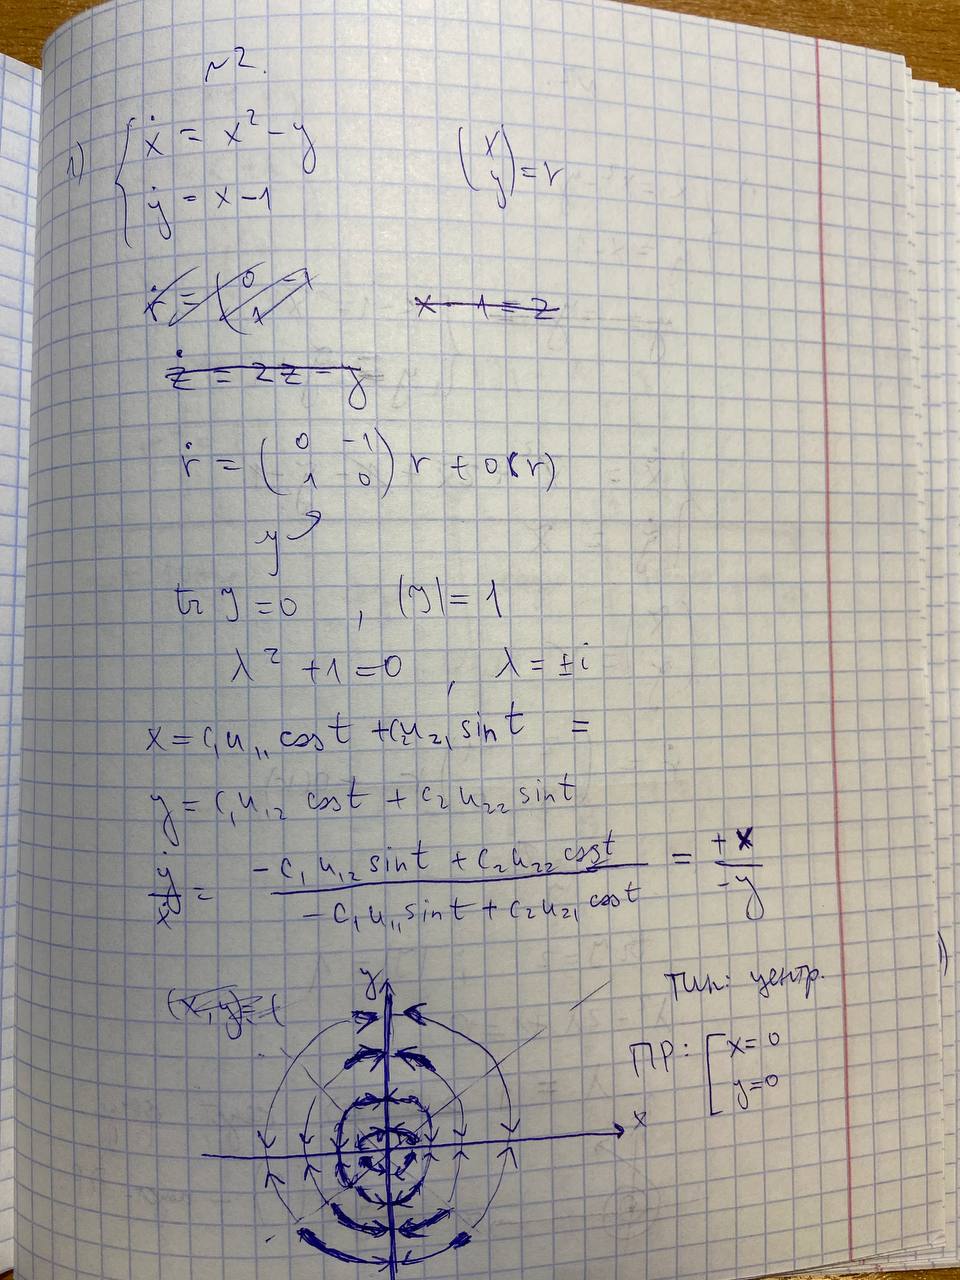 №2.
1) { ẋ = x² - y
ẏ = x - 1
(x y) = r
ṙ = (0 1
x - 1 = z
ż = 2z - y
ṙ = (0 -1 1 0) r + o(r)
y
tr y = 0 , |y| = 1
λ² + 1 = 0 , λ = ±i
x = c₁u₁₁ cos t + c₂u₂₁ sin t =
y = c₁u₁₂ cos t + c₂u₂₂ sin t
ẏ/ẋ = (-c₁u₁₂ sin t + c₂u₂₂ cos t)/(-c₁u₁₁ sin t + c₂u₂₁ cos t) = +x/-y
(x, y) = (
y
x
Тип: центр.
ПР: [ x = 0
y = 0